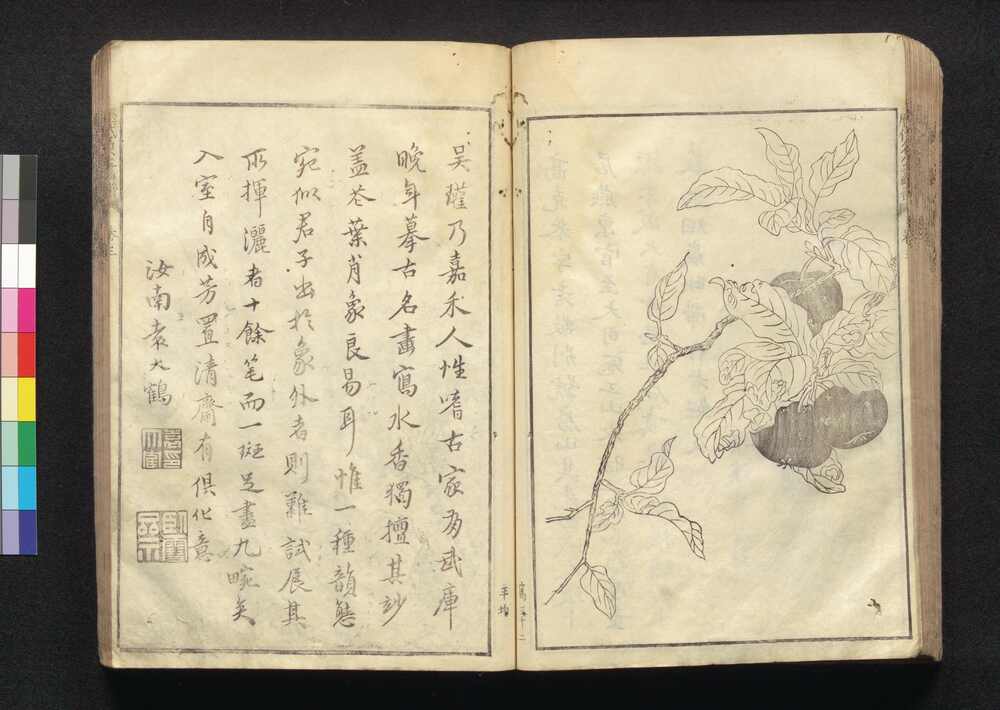 吴瓘乃嘉禾人性嗜古家多武庫
晚年摹古名畫寫水香獨擅其妙
盖花葉肖象良易耳惟一種韻態
宛似君子出於象外者則難試展其
所揮灑者十餘笔而一斑足盡九畹矣
入室自成芳置清齋有俱化意
汝南袁大鶴